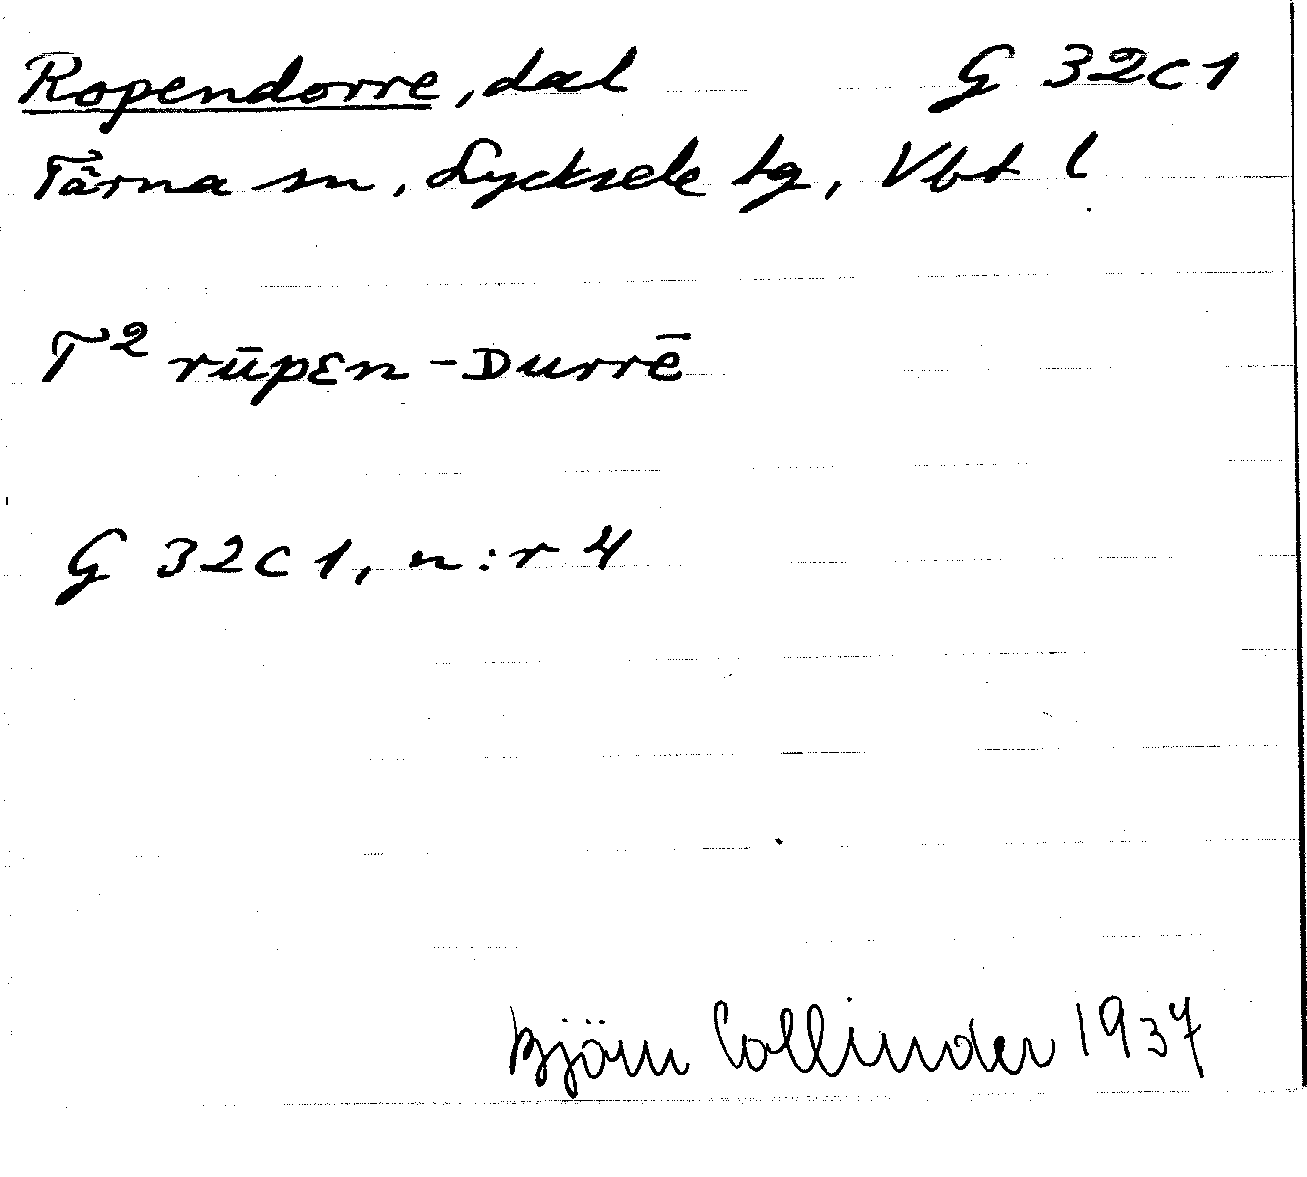 Ropendorre, dal G 32c1
Tärna sn, Lycksele lg, Vbt l
T² rūpεn-Durrē
G 32c1, n:r 4
Björn Collinder 1937